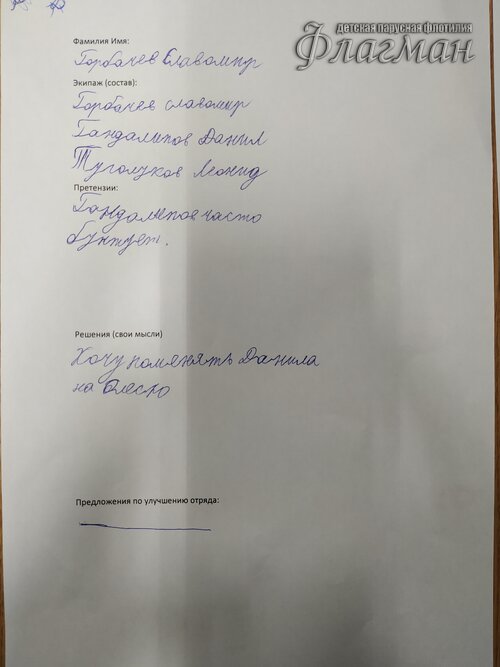 детская парусная флотилия
Флагман
Фамилия Имя:
Горбачев Славомир
Экипаж (состав):
Горбачев славомир
Гандалипов Данил
Туголуков Леонид
Претензии:
Гандалипов часто
бунтует.
Решения (свои мысли)
Хочу поменять Данила
на Олесю
Предложения по улучшению отряда: